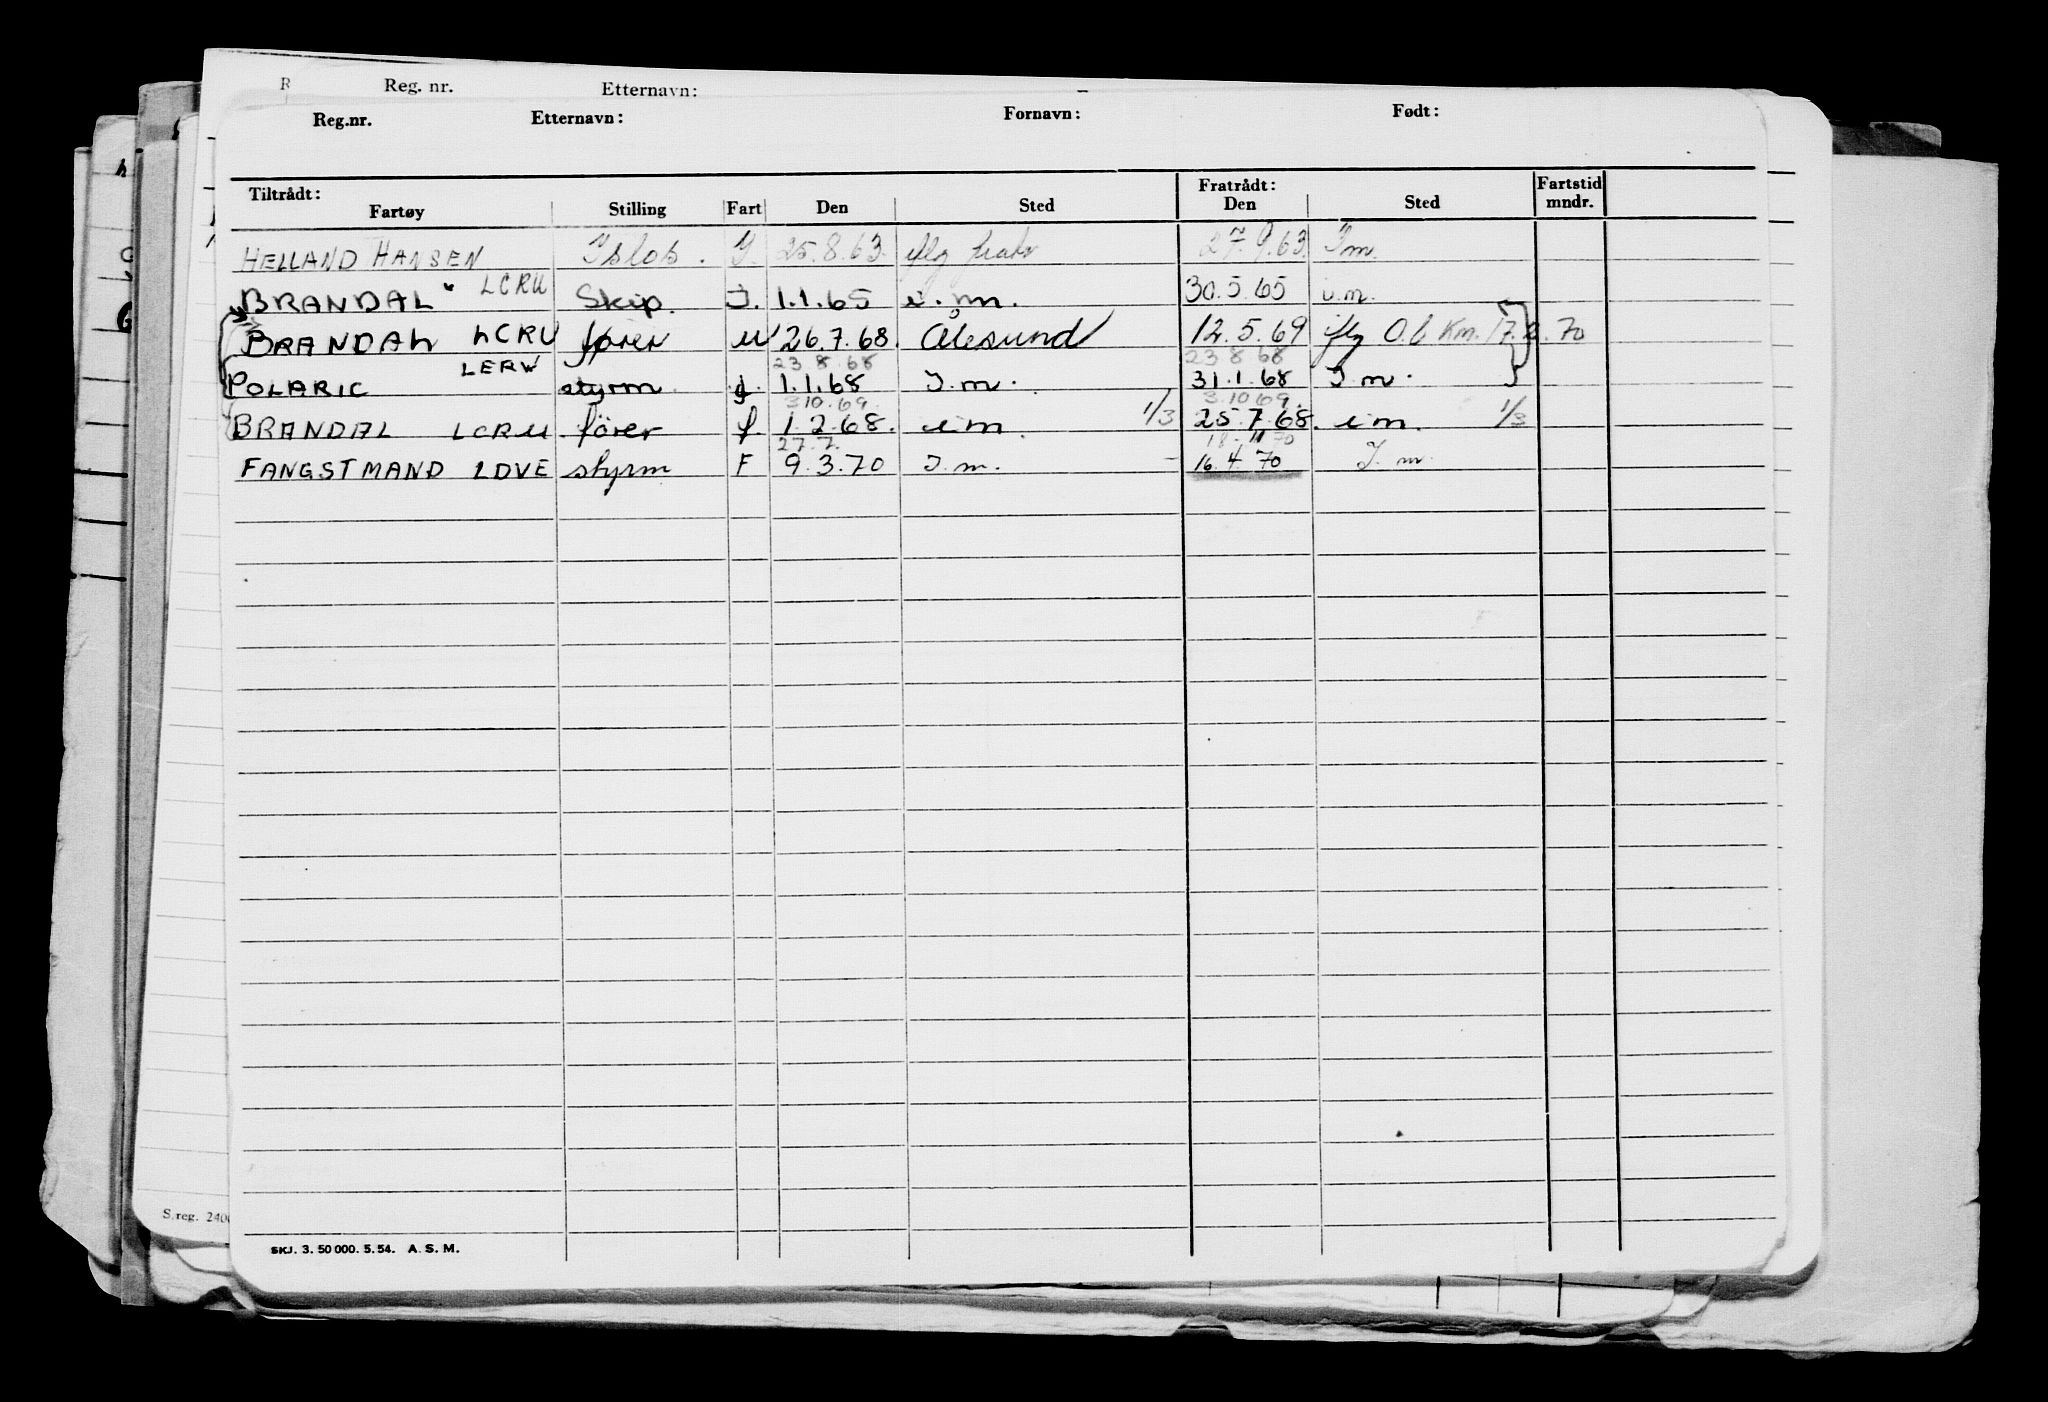 R Reg. nr. Etternavn:
Reg.nr. Etternavn: Fornavn: Født:
Tiltrådt: Fratrådt: Fartstid
Fartøy Stilling Fart Den Sted Den Sted mndr.
HELLAND HANSEN 25.8.63. iflg 27.9.63. I m.
BRANDAL LCRU Skip. I. 1.1.65 i. m. 30.5.65 i.m.
BRANDAL LCRU fører U 26.7.68. Ålesund 12.5.69 iflg O.b Km. 17.2.70
23.8.68 23.8.68
POLARIC LERW styrm 1.1.68 I.m. 31.1.68 I.m.
3.10.69. 3.10.69.
BRANDAL LCRU fører f. 1.2.68. i m. 1/3 25.7.68. i m. 1/3
27.7. 18-11 70
FANGSTMAND LDVE styrm F 9.3.70 I.m. - 16.4.70 I. m.
S.reg. 240
SKJ. 3. 50 000. 5. 54. A. S. M.